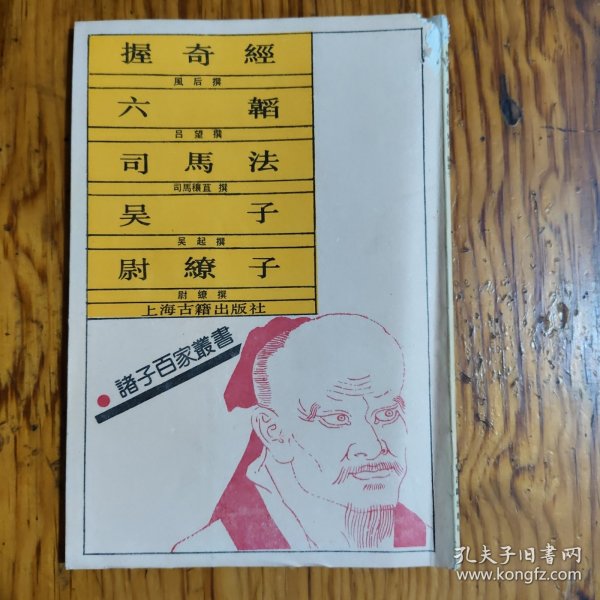 握奇經
風后撰
六韜
呂望撰
司馬法
司馬穰苴撰
吴子
吴起撰
尉繚子
尉繚撰
上海古籍出版社
諸子百家叢書
孔夫子旧书网
www.kongfz.com